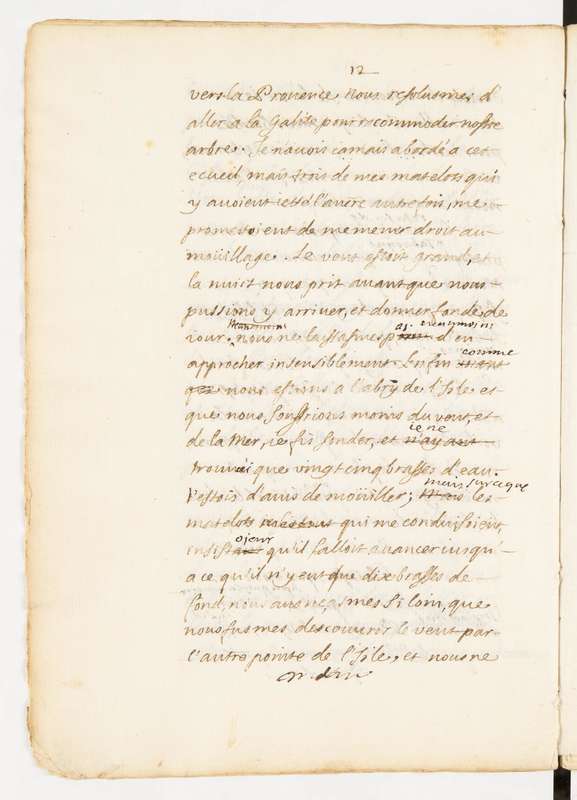 12
vers la Prouence nous resolusmes d'
aller a la Galite pour recommoder nostre
arbre. Je n'auois iamais abordé a cet
ecueil, mais trois de mes matelots qui
y auoient ietté l'ancre autrefois, me
prometoient de me mener droit au
moüillage. Le vent estoit grand, et
la nuict nous prit auant que nous
pussions y arriuer, et donner fonde de
neanmoins
iour. nous ne laissasmes pas d'en
approcher insensiblement. Enfin comme
nous estions a l'abry de l'Isle et
que nous souffrions moins du vent, et
de la Mer, ie fis sonder, et ie ne n'ayant
trouuai que vingt cinq brasses d'eau.
J'estois d'auis de moüiller; mais surce que les
matelots qui me conduisoient,
insist oient qu'il falloit auancer iusqu'
a ce qu'il n'y eut que dix brasses de
fond, nous auançasmes si loin, que
nous fusmes descouurir le vent par
l'autre pointe de l'Isle, et nous ne